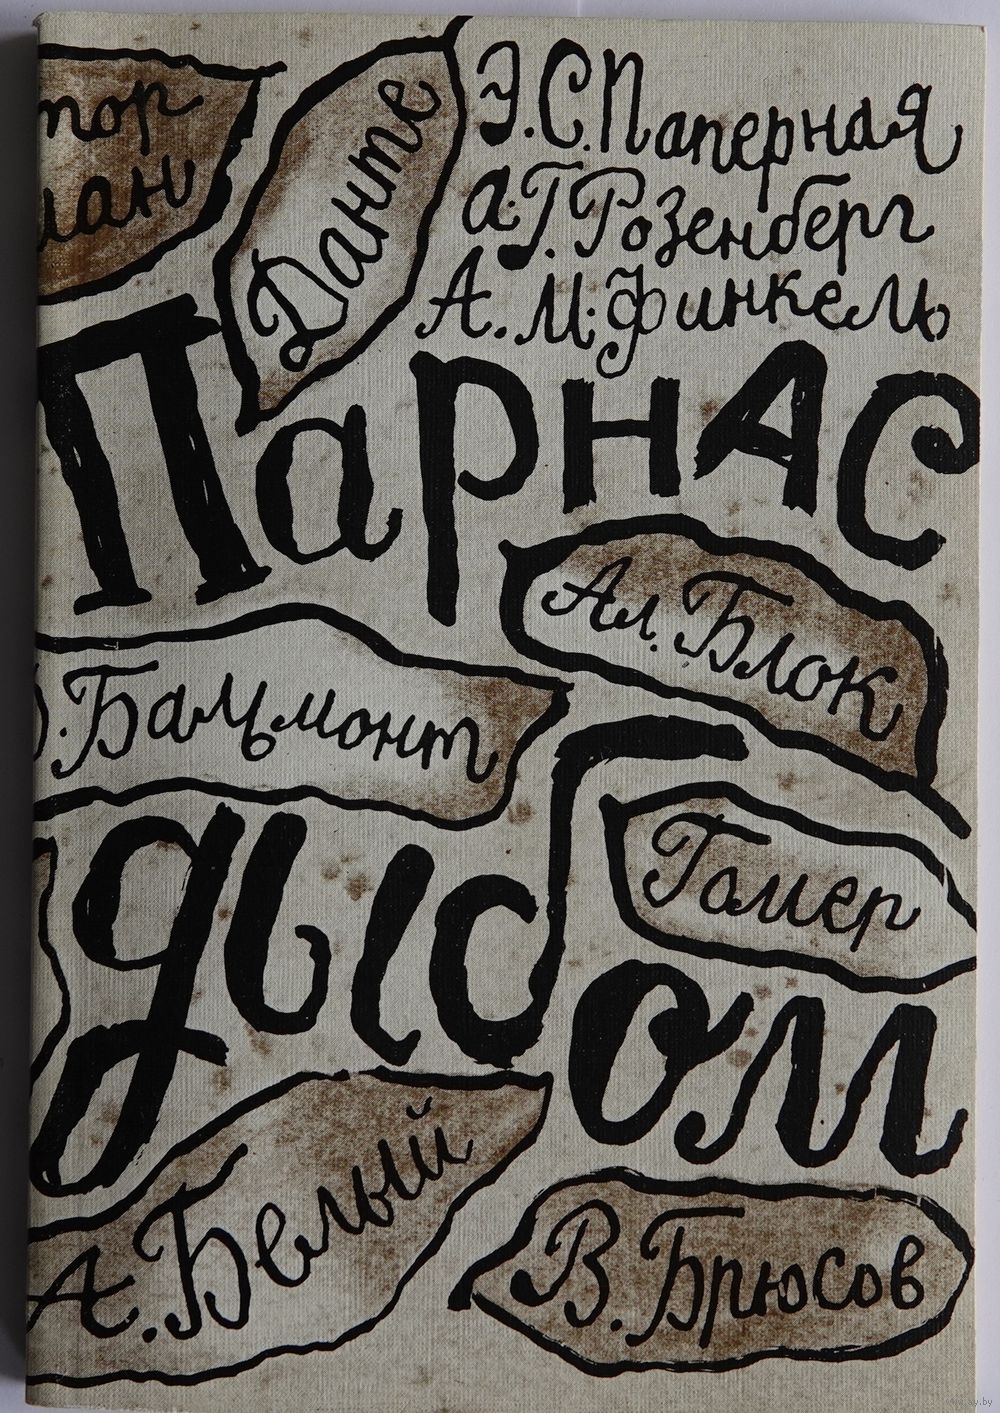 тор
Данте
Э.С.Паперная
А.Г.Розенберг
А.М.Финкель
Парнас
Ал. Блок
Бальмонт
дыбом
Гомер
А. Белый
В. Брюсов